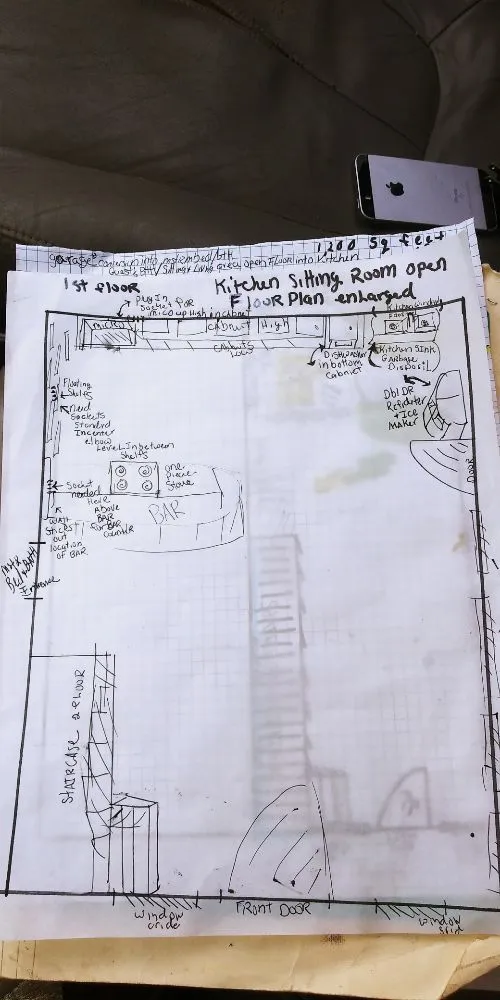 1200 Sq feet
garage conversion into mstr bed/bth
open Floor into Kitchen
1st floor
Kitchen Sitting Room open
Floor Plan enlarged
Plug In
Socket For
mico up High in cabinet
micro
CABnut High
CABnuts
Low
Dishwasher
in bottom
Cabniet
Kitchen Sink
GArbage
Disposil
Dbl DR
+ Ice
MAker
DOOR
Floating
Shlfes
Need
Sockets
Standrd
In center
elbow
Level Inbetween
Shelfs
one
piece
Stove
Socket
needed
Here
Above
BAR
For BAR
Counter
BAR
Wall
Sticks
out
location
of BAR
mstr
Bed+Bth
Entrance
STAIRCASE 2 FLOOR
window
FRONT DOOR
window